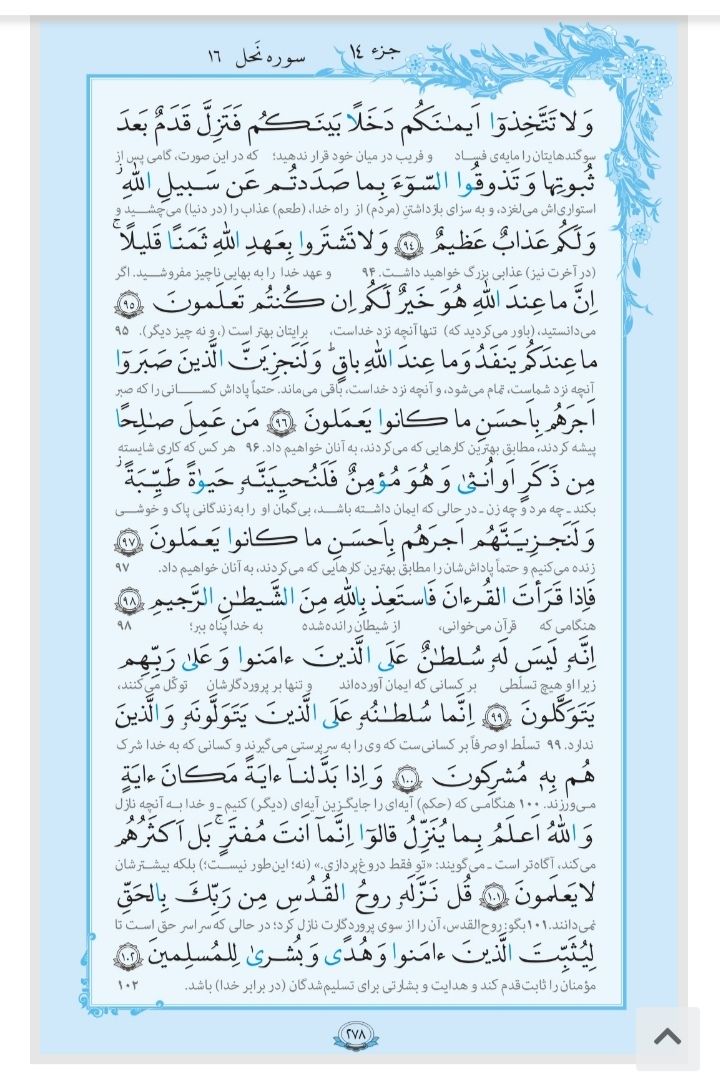 جزء ۱۴
سوره نَحل ۱۶
وَ لا تَتَّخِذوٓا اَيمٰنَكُم دَخَلًا بَينَكُم فَتَزِلَّ قَدَمٌ بَعدَ
سوگندهایتان را مایه‌ی فساد و فریب در میان خود قرار ندهید؛ که در این صورت، گامی پس از
ثُبوتِها وَ تَذوقُوا السّوٓءَ بِما صَدَدتُم عَن سَبيلِ اللهِۖ
استواری‌اش می‌لغزد، و به سزای بازداشتنِ (مردم) از راه خدا، (طعم) عذاب را (در دنیا) می‌چشید و
وَ لَكُم عَذابٌ عَظيمٌ ﴿۹۴﴾ وَ لا تَشتَروا بِعَهدِ اللهِ ثَمَنًا قَليلًاۚ
(در آخرت نیز) عذابی بزرگ خواهید داشت. ۹۴ و عهد خدا را به بهایی ناچیز مفروشید. اگر
اِنَّ ما عِندَ اللهِ هُوَ خَيرٌ لَكُم اِن كُنتُم تَعلَمونَ ﴿۹۵﴾
می‌دانستید، (باور می‌کردید که) تنها آنچه نزد خداست، برایتان بهتر است (، و نه چیز دیگر). ۹۵
ما عِندَكُم يَنفَدُ وَ ما عِندَ اللهِ باقٍۗ وَ لَنَجزِيَنَّ الَّذينَ صَبَروٓا
آنچه نزد شماست، تمام می‌شود، و آنچه نزد خداست، باقی می‌ماند. حتماً پاداش کسانی را که صبر
اَجرَهُم بِاَحسَنِ ما كانوا يَعمَلونَ ﴿۹۶﴾ مَن عَمِلَ صٰلِحًا
پیشه کردند، مطابق بهترین کارهایی که می‌کردند، به آنان خواهیم داد. ۹۶ هر کس که کاری شایسته
مِن ذَكَرٍ اَو اُنثىٰ وَ هُوَ مُؤمِنٌ فَلَنُحيِيَنَّهٗ حَيوٰةً طَيِّبَةًۖ
بکند ـ چه مرد و چه زن ـ در حالی که ایمان داشته باشد، بی‌گمان او را به زندگانی پاک و خوشی
وَ لَنَجزِيَنَّهُم اَجرَهُم بِاَحسَنِ ما كانوا يَعمَلونَ ﴿۹۷﴾
زنده می‌کنیم و حتماً پاداش‌شان را مطابق بهترین کارهایی که می‌کردند، به آنان خواهیم داد. ۹۷
فَاِذا قَرَأتَ القُرءانَ فَاستَعِذ بِاللهِ مِنَ الشَّيطٰنِ الرَّجيمِ ﴿۹۸﴾
هنگامی که قرآن می‌خوانی، از شیطان رانده‌شده به خدا پناه ببر؛ ۹۸
اِنَّهٗ لَيسَ لَهٗ سُلطٰنٌ عَلَى الَّذينَ ءامَنوا وَ عَلىٰ رَبِّهِم
زیرا او هیچ تسلّطی بر کسانی که ایمان آورده‌اند و تنها بر پروردگارشان توکّل می‌کنند،
يَتَوَكَّلونَ ﴿۹۹﴾ اِنَّما سُلطٰنُهٗ عَلَى الَّذينَ يَتَوَلَّونَهٗ وَ الَّذينَ
ندارد. ۹۹ تسلّط او صرفاً بر کسانی‌ست که وی را به سرپرستی می‌گیرند و کسانی که به خدا شرک
هُم بِهٖ مُشرِكونَ ﴿۱۰۰﴾ وَ اِذا بَدَّلنآ ءايَةً مَكانَ ءايَةٍ
می‌ورزند. ۱۰۰ هنگامی که (حکم) آیه‌ای را جایگزین آیه‌ای (دیگر) کنیم ـ و خدا به آنچه نازل
وَ اللهُ اَعلَمُ بِما يُنَزِّلُ قالوٓا اِنَّمآ اَنتَ مُفتَرٍۚ بَل اَكثَرُهُم
می‌کند، آگاه‌تر است ـ می‌گویند: «تو فقط دروغ‌پردازی.» (نه؛ این‌طور نیست؛) بلکه بیشترشان
لا يَعلَمونَ ﴿۱۰۱﴾ قُل نَزَّلَهٗ روحُ القُدُسِ مِن رَبِّكَ بِالحَقِّ
نمی‌دانند. ۱۰۱ بگو: روح‌القدس، آن را از سوی پروردگارت نازل کرد؛ در حالی که سراسر حق است تا
لِيُثَبِّتَ الَّذينَ ءامَنوا وَ هُدًى وَ بُشرىٰ لِلمُسلِمينَ ﴿۱۰۲﴾
مؤمنان را ثابت‌قدم کند و هدایت و بشارتی برای تسلیم‌شدگان (در برابر خدا) باشد. ۱۰۲
۲۷۸